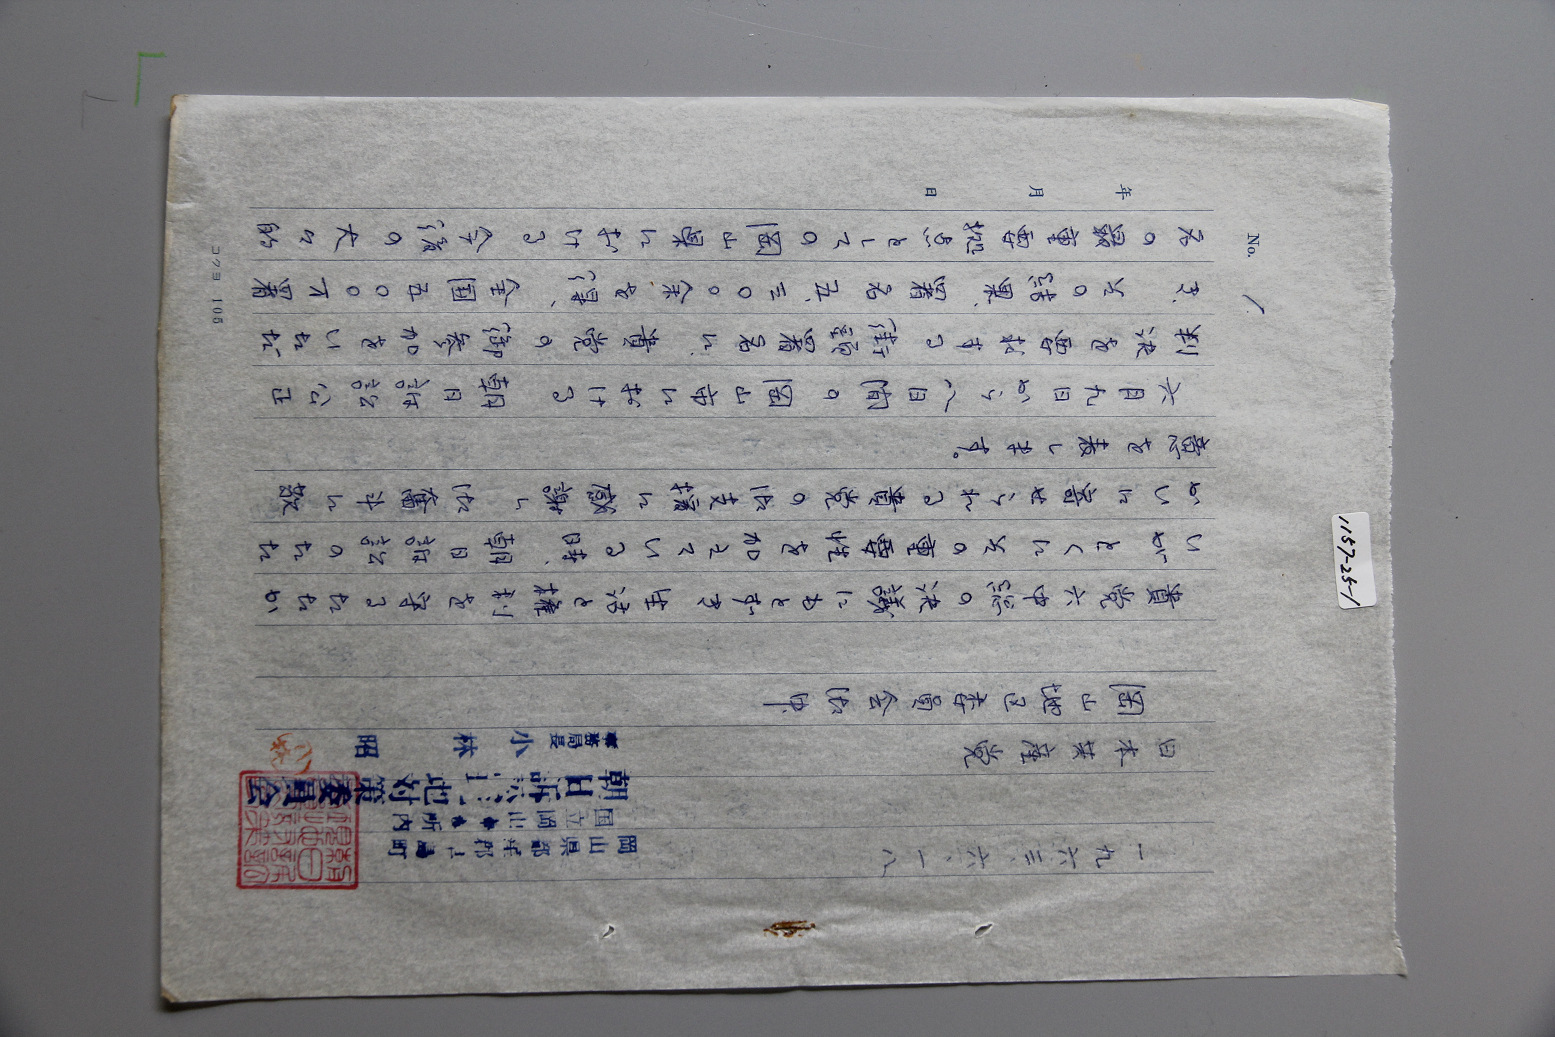 No. 1
年 月 日
一九六三、六、一八
岡山県都窪郡早島町
国立岡山療養所内
朝日訴訟対策委員会
事務局長 小林 昭
日本共産党
岡山地区委員会御中
貴党六中総の決議にもとずき生活と権利を守るたたか
いがとくにその重要性を加えている時、朝日訴訟のたた
かいに寄せられる貴党の御支援に感謝し、御奮斗に敬
意を表します。
六月九日から八日間の岡山市における朝日訴訟公正
判決を要求する街頭署名に、貴党の御参加をいただ
き、その結果、署名五、三〇〇余を得、全国五〇〇万署
名の最重要拠点としての岡山県における今後の大々的
コクヨ 105
1157-25-1